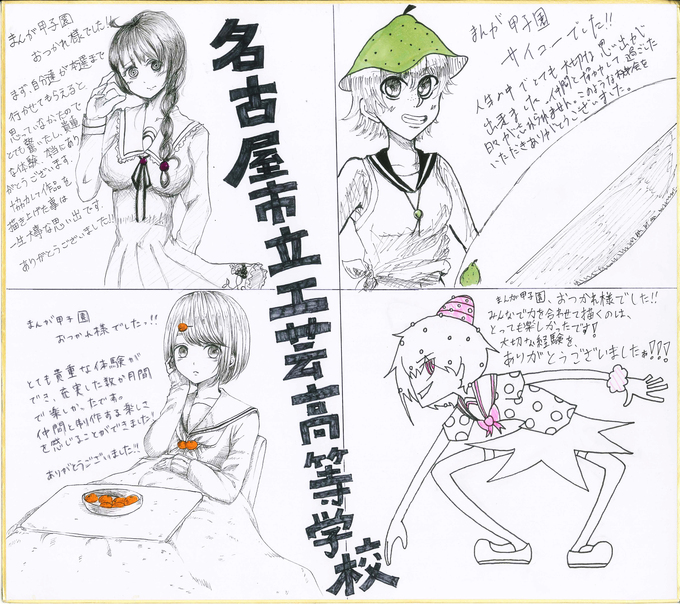 まんが甲子園
おつかれ様でした!!
まず、自分達が本選まで
行かせてもらえると
思っていなかったので
とても驚いたし、貴重
な体験、本当にあり
がとうございます。
協力して作品を
描き上げた事は
一生大事な思い出です。
ありがとうございました!!
名古屋市立工芸高等学校
まんが甲子園
サイコーでした!!
人生の中でとても大切な思い出が
出来ました。仲間と協力して過ごした
日々が忘れられません。このような機会を
いただきありがとうございました。
まんが甲子園
おつかれ様でしたっ!!
とても貴重な体験が
でき、充実した数か月間
で楽しかったです。
仲間と制作する楽しさ
を感じることができました!
ありがとうございました!!
まんが甲子園、おつかれ様でした!!
みんなで力を合わせて描くのは、
とっても楽しかったです!
大切な経験を、
ありがとうございましたぁ!!!